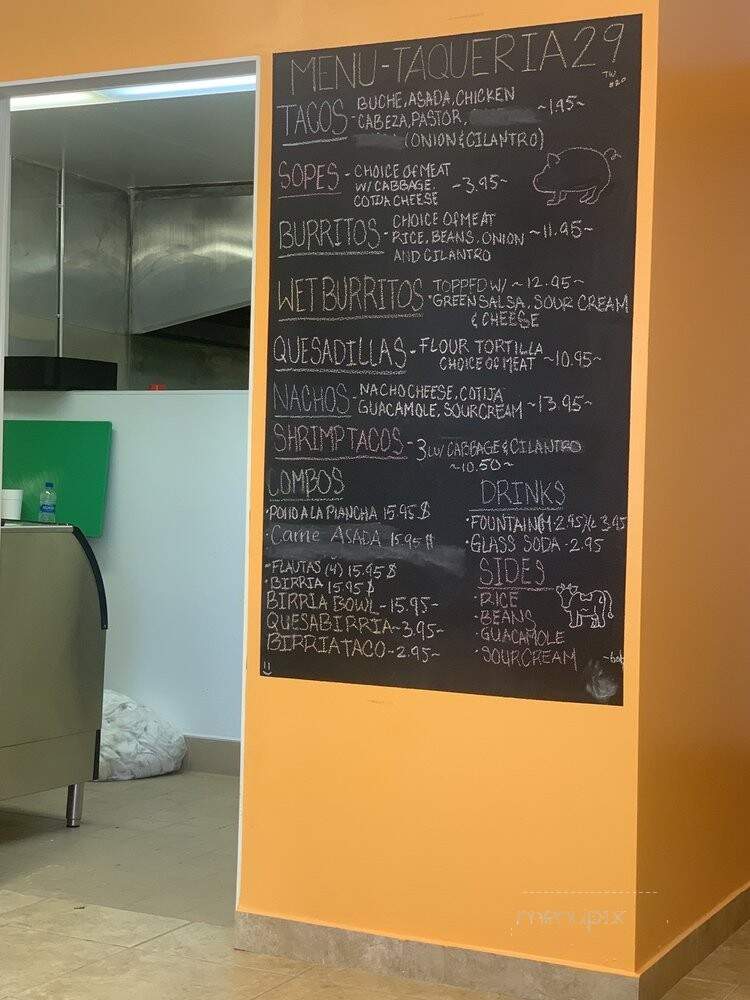 MENU-TAQUERIA 29
TW
#20
TACOS - BUCHE, ASADA, CHICKEN
CABEZA, PASTOR, ~1.95~
(ONION & CILANTRO)
SOPES - CHOICE OF MEAT
W/ CABBAGE, ~3.95~
COTIJA CHEESE
BURRITOS - CHOICE OF MEAT
RICE, BEANS, ONION ~11.95~
AND CILANTRO
WET BURRITOS TOPPED W/ ~12.95~
GREEN SALSA, SOUR CREAM
& CHEESE
QUESADILLAS - FLOUR TORTILLA
CHOICE OF MEAT ~10.95~
NACHOS - NACHO CHEESE, COTIJA
GUACAMOLE, SOURCREAM ~13.95~
SHRIMP TACOS - 3 W/ CABBAGE & CILANTRO
~10.50~
COMBOS
·POLLO A LA PLANCHA 15.95$
·Carne ASADA 15.95$
·FLAUTAS (4) 15.95$
·BIRRIA 15.95$
BIRRIA BOWL - 15.95~
QUESABIRRIA ~3.95~
BIRRIA TACO - 2.95~
DRINKS
·FOUNTAIN (M-2.95)(L 3.95
·GLASS SODA - 2.95
SIDES
·RICE
·BEANS
·GUACAMOLE
·SOURCREAM
menupix